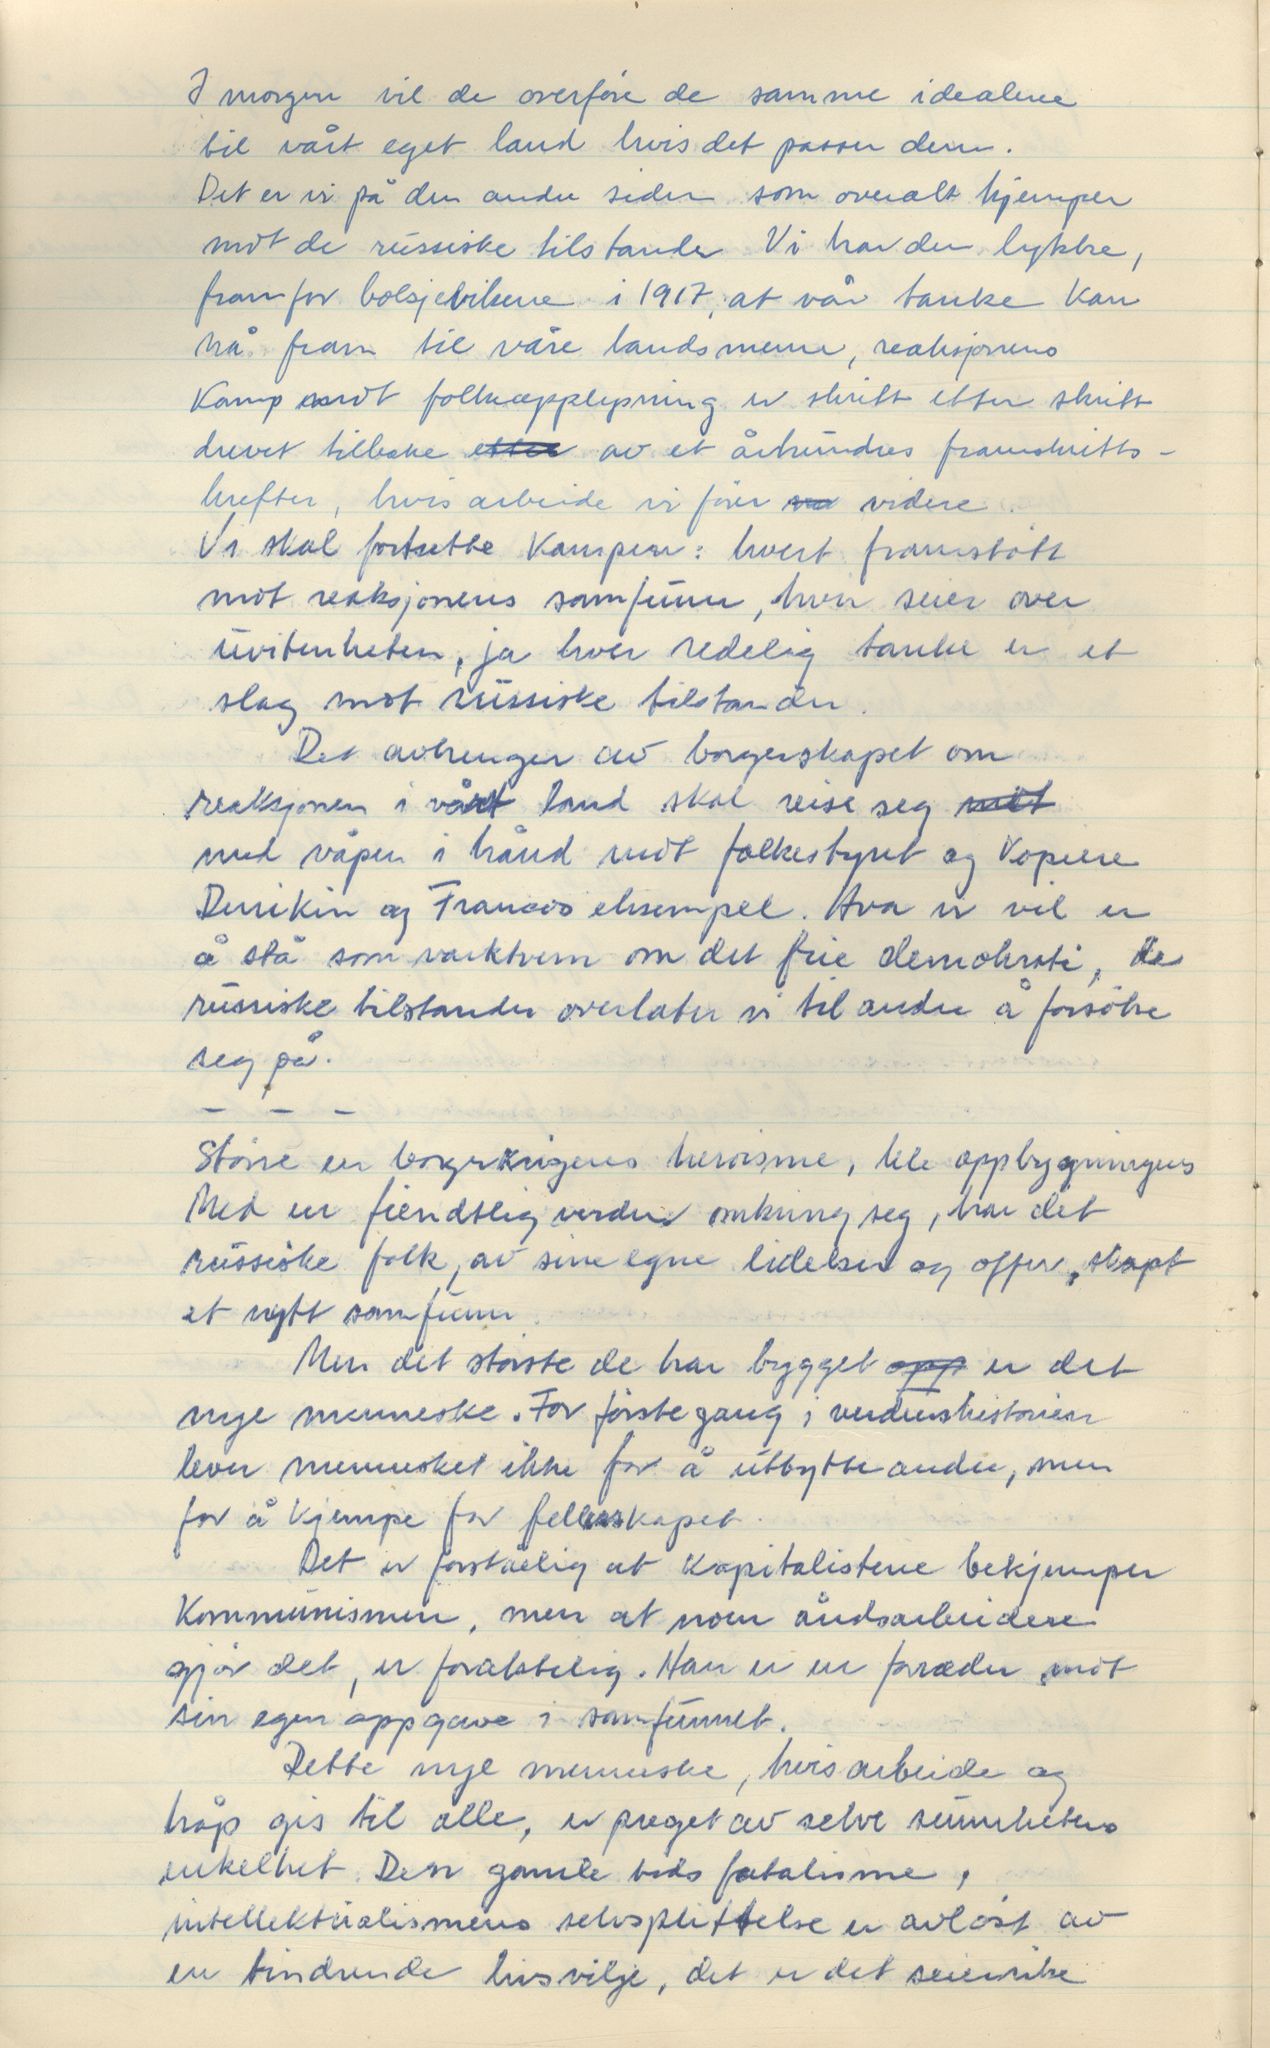 I morgen vil de overføre de samme idealene
til vårt eget land hvis det passer dem.
Det er vi på den andre siden som overalt kjemper
mot de russiske tilstander Vi har den lykke,
framfor bolsjevikene i 1917, at vår tanke kan
nå fram til våre landsmenn, reaksjonens
kamp mot folkeopplysning er skritt etter skritt
drevet tilbake etter av et århundres framskritts-
krefter, hvis arbeide vi fører va videre.
Vi skal fortsette kampen: hvert framstøtt
mot reaksjonens samfunn, hver seier over
uvitenheten, ja hver redelig tanke er et
slag mot russiske tilstander.
Det avhenger av borgerskapet om
reaksjonen i vårt land skal reise seg mot
med våpen i hånd mot folkestyret og kopiere
Denikin og Francos eksempel. Hva vi vil er
å stå som vaktvern om det frie demokrati, de
russiske tilstander overlater vi til andre å forsøke
seg på.
– – –
Større en borgerkrigens heroisme, ble oppbygningens
Med en fiendtlig verden omkring seg, har det
russiske folk, av sine egne lidelser og offer, skapt
et nytt samfunn.
Men det største de har bygget opp er det
nye menneske. For første gang i verdenshistorien
lever mennesket ikke for å utbytte andre, men
for å kjempe for fellesskapet.
Det er forståelig at kapitalistene bekjemper
kommunismen, men at noen åndsarbeidere
gjør det, er foraktelig. Han er en forræder mot
sin egen oppgave i samfunnet.
Dette nye menneske, hvis arbeide og
håp gis til alle, er preget av selve sunnhetens
enkelhet. Den gamle tids fatalisme,
intellektualismens selvsplittelse er avløst av
en tindrende livsvilje, det er det seierrike